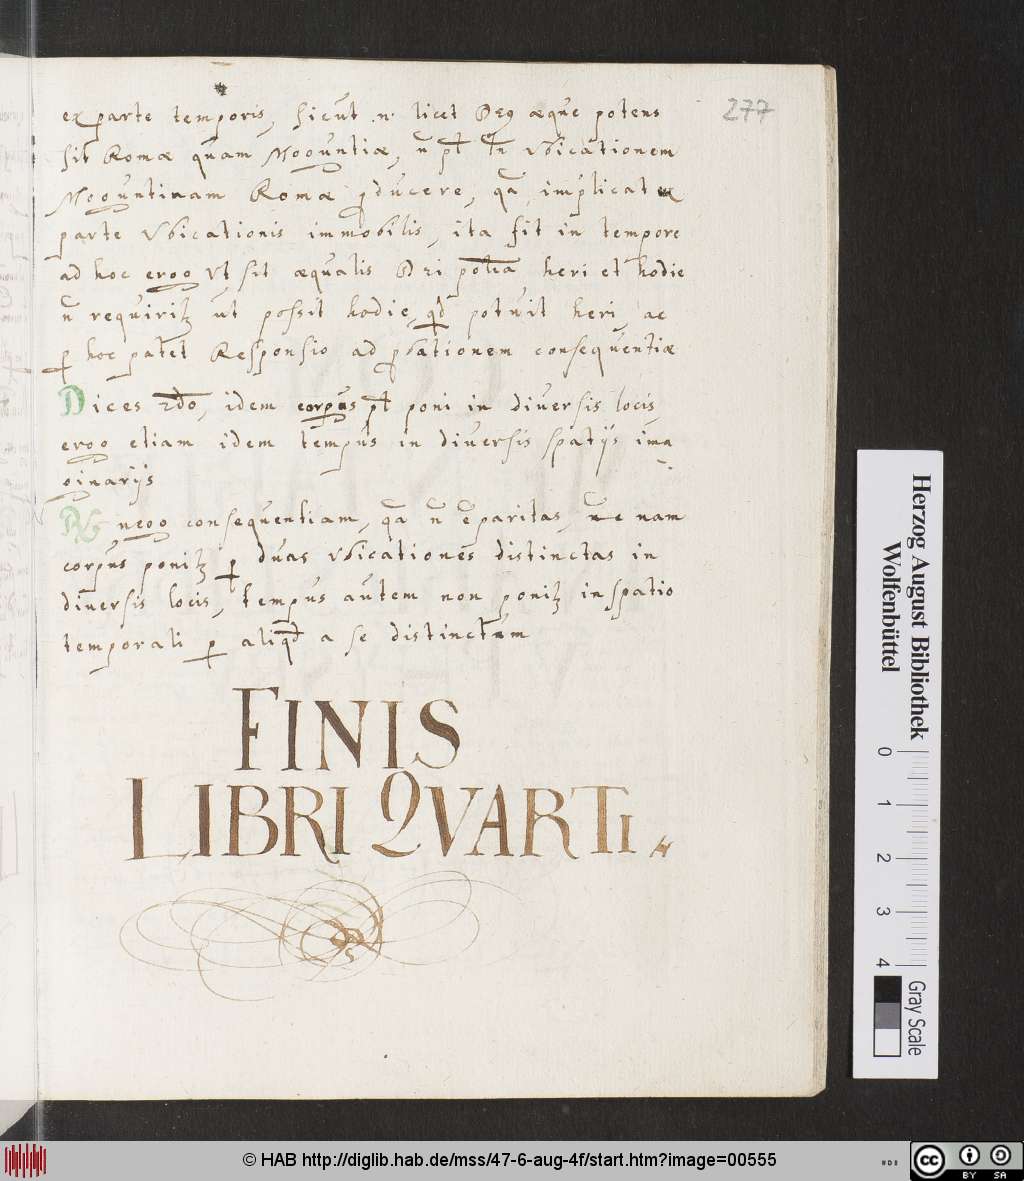 ex parte temporis, sicut .n. licet De9 æque potens
sit Romæ quam Moguntiæ, n̄ pt̄ tn̄ vbicationem
Moguntinam Romæ ꝓducere, qa implicat ex
parte Vbicationis immobilis, ita fit in tempore
ad hoc ergo Vt sit æqualis Dei potēa heri et hodie
n̄ requiritꝫ ut possit hodie, qd potuit heri, ac
ꝑ hoc patet Responsio ad ꝓbationem consequentiæ
Dices 2do, idem corpus pt̄ poni in diuersis locis
ergo etiam idem tempus in diuersis spatijs ima
ginarijs
nego consequentiam, qa n̄ ē paritas, nam
corpus ponitꝫ ꝑ duas Vbicationes distinctas in
diuersis locis, tempus autem non ponitꝫ in spatio
temporali ꝑ aliqd a se distinctum
FINIS
LIBRI QVARTI
277
Herzog August Bibliothek
Wolfenbüttel
0 1 2 3 4
Gray Scale
© HAB http://diglib.hab.de/mss/47-6-aug-4f/start.htm?image=00555
cc BY SA